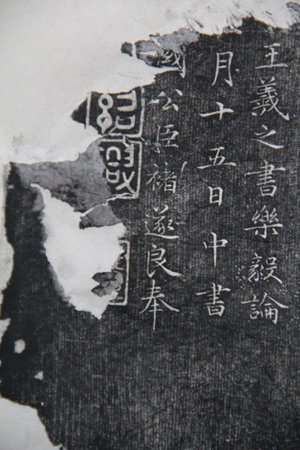 王羲之書樂毅論
月十五日中書
國公臣褚遂良奉